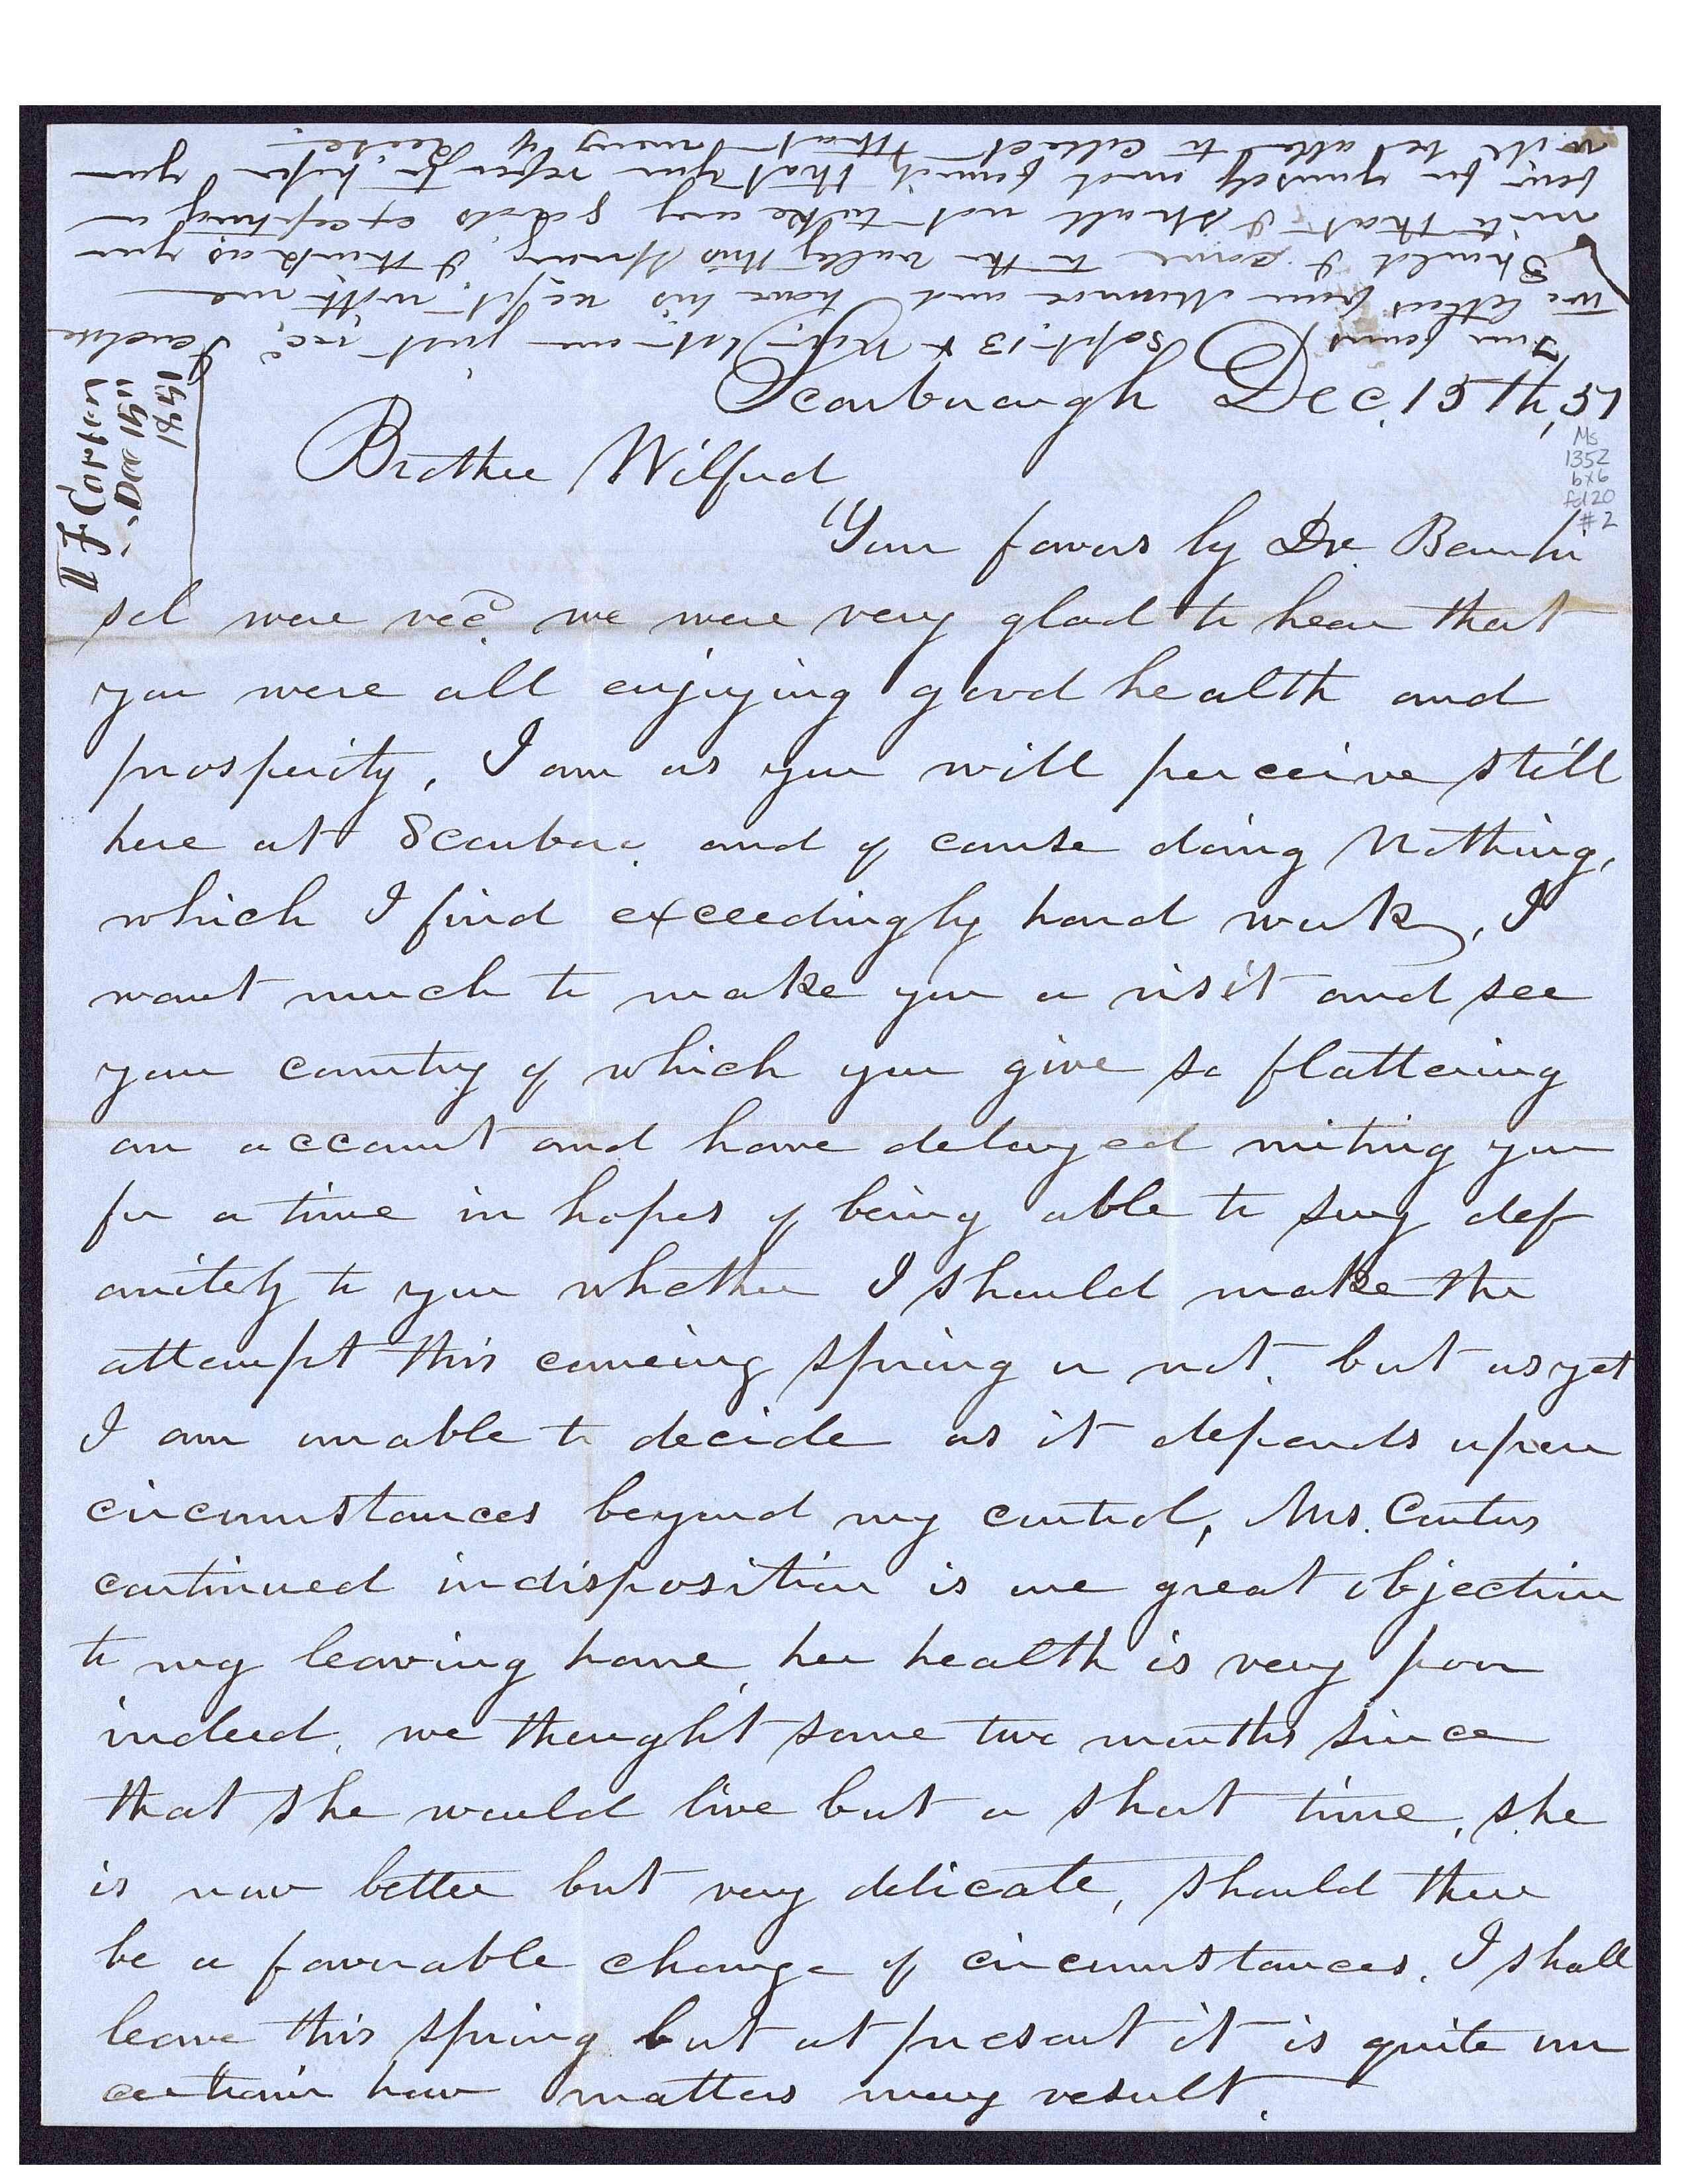 Your favors Sept. 13 & Nov. 1st are just rec. I enclose
two letters from and have his rec'pt. with me
Should I come to the vally this spring, I think as you
write that I shall not take any goods excepting a
few for yourself and family that you refer to, hope you
will be able to collect that money of Leese.
I F Carter
Dec 15"
1851
Scarborough Dec. 15th, 51
Brother Wilford
Your favors by Dr. Bernhi
sel were recd. we were very glad to hear that
you were all enjoying good health and
prosperity, I am as you will perceive still
here at Scarboro. and of course doing nothing,
which I find exceedingly hard work, I
want much to make you a visit and see
your country of which you give so flattering
an account and have delayed writing you
for a time in hopes of being able to say def
anitely to you whether I should make the
attempt this comeing spring or not. but as yet
I am unable to decide as it depends upon
circumstances beyond my control, Mrs. Carters
continued indisposition is one great objection
to my leaving home, her health is very poor
indeed, we thought some two months since
that she would live but a short time, she
is now better but very delicate, should there
be a favorable change of circumstances, I shall
leave this spring but at present it is quite un
certain how matters may result.
Ms
1352
bx6
fd20
#2